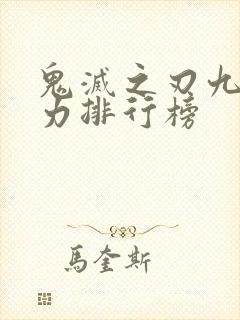 鬼滅之刃九
力排行榜
馬奎斯